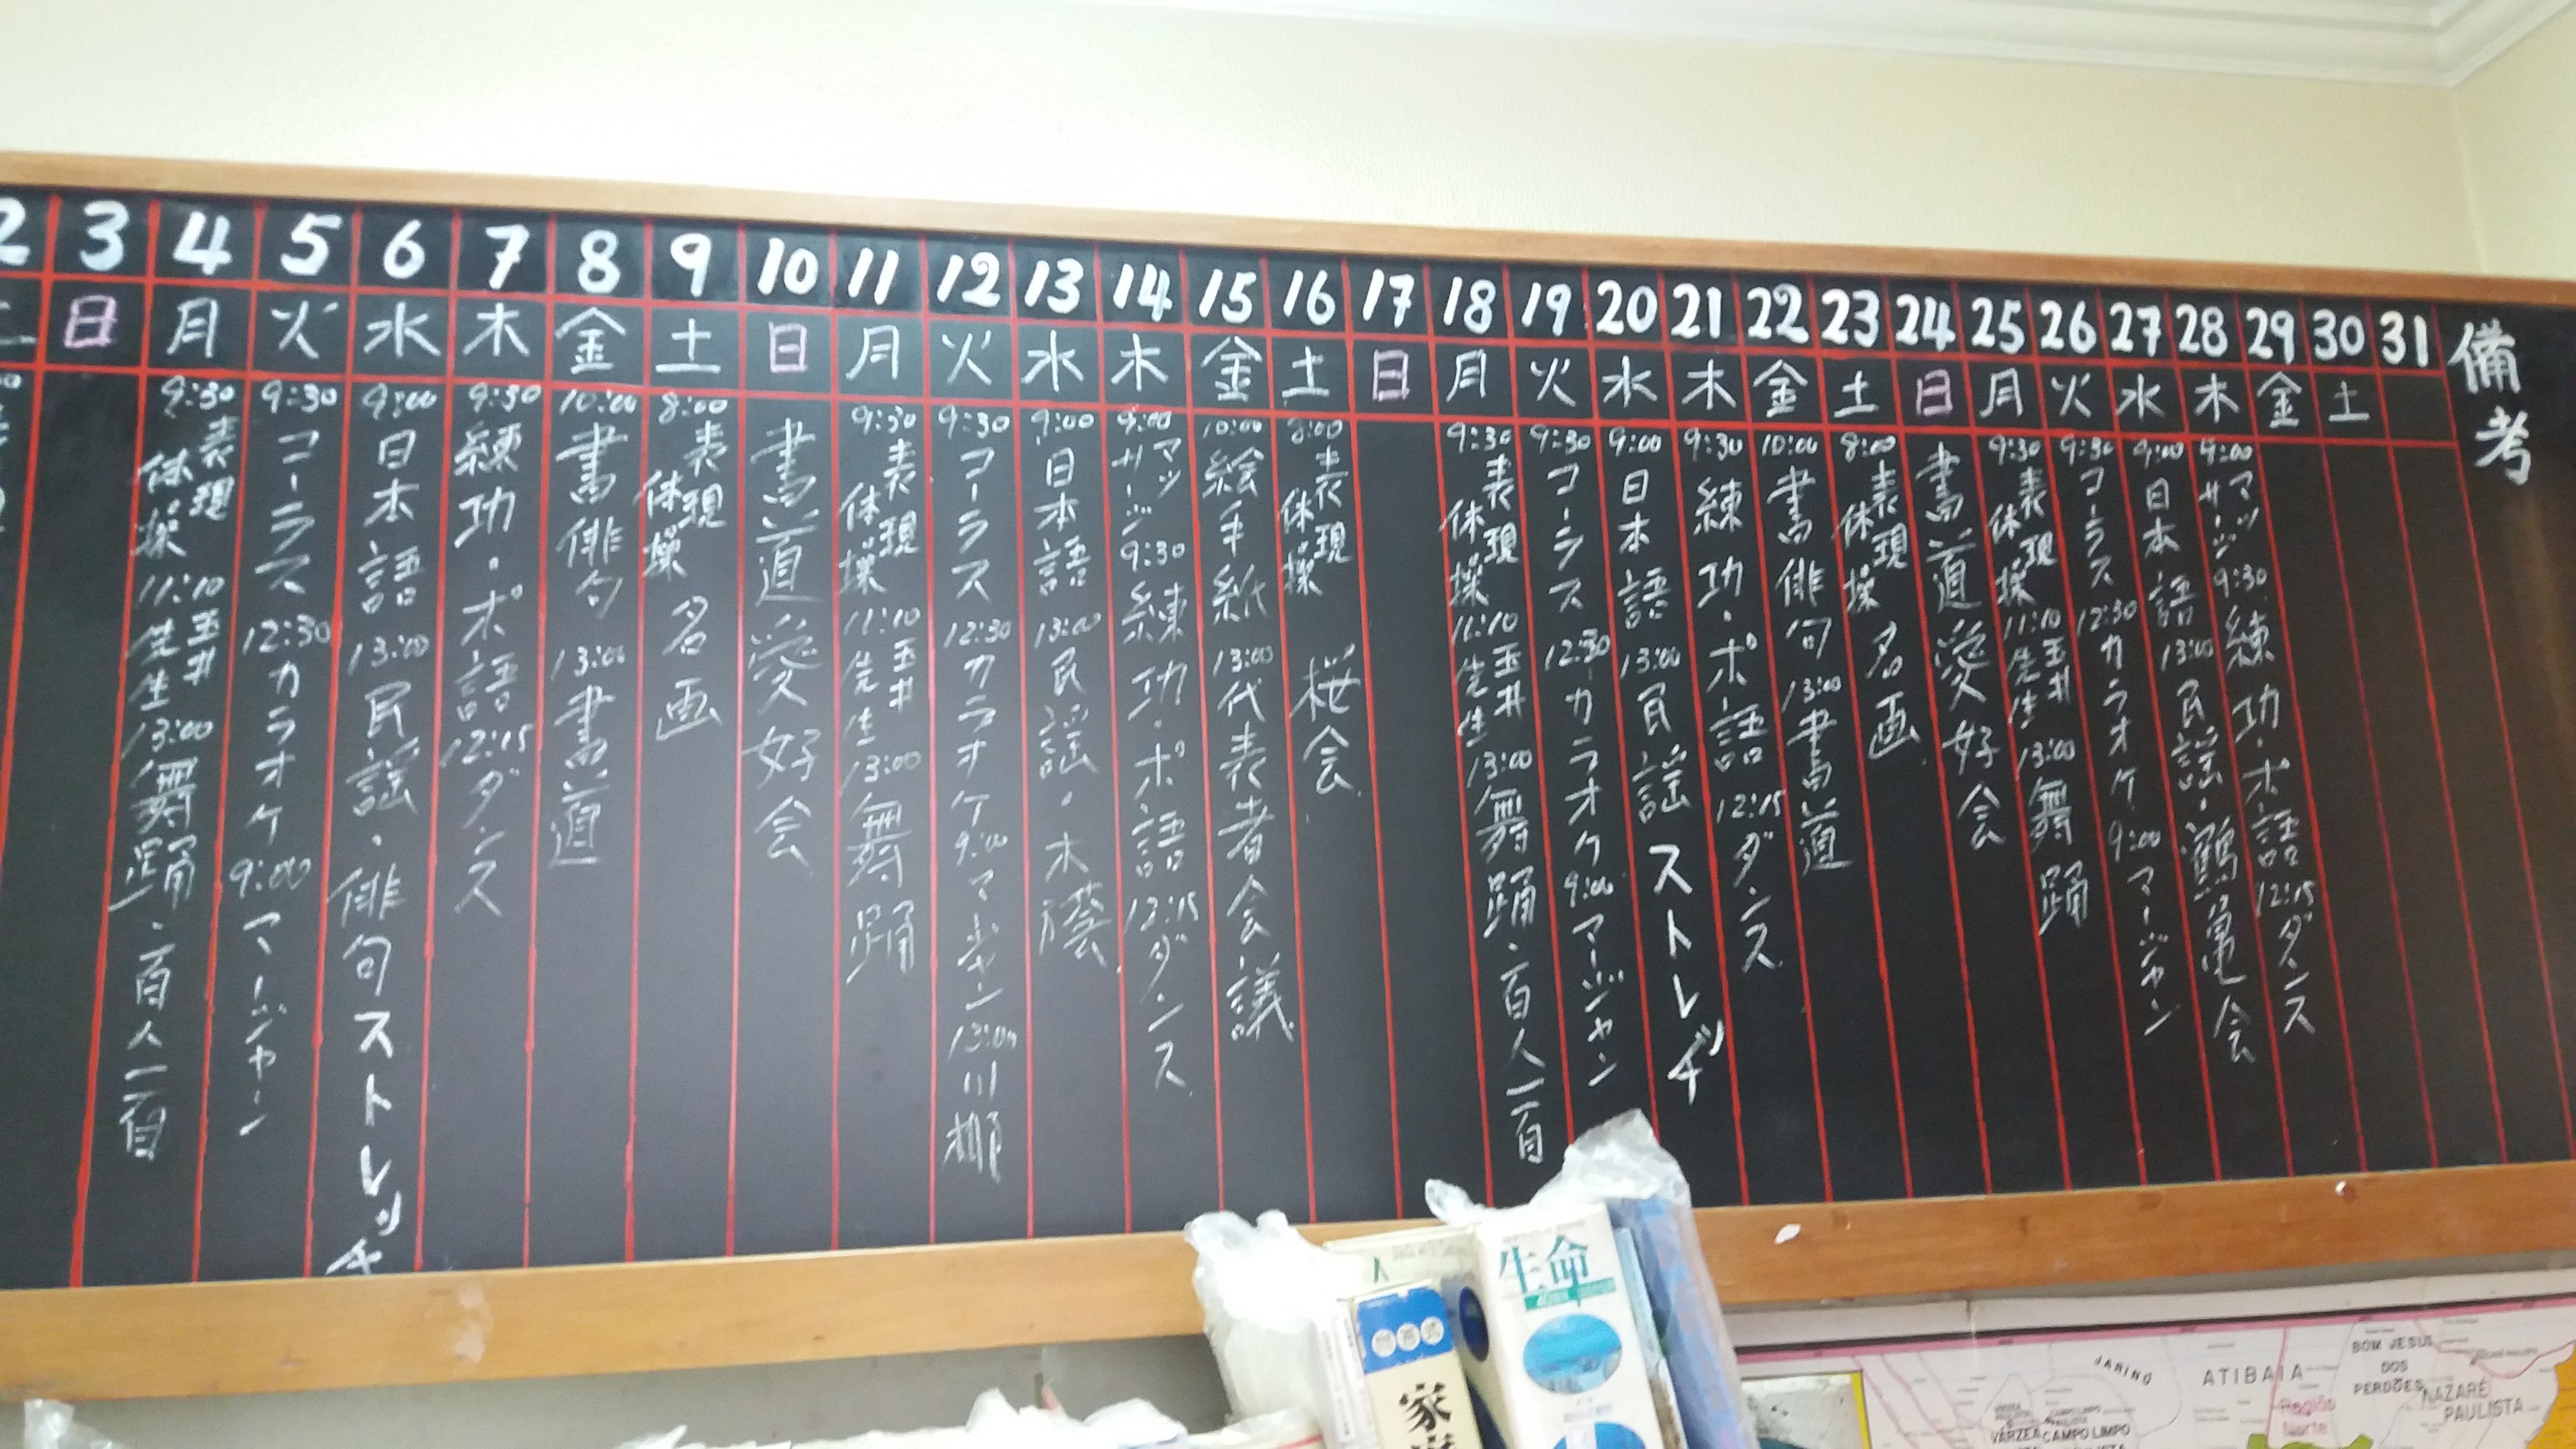 2 3 4 5 6 7 8 9 10 11 12 13 14 15 16 17 18 19 20 21 22 23 24 25 26 27 28 29 30 31 備考
土 日 月 火 水 木 金 土 日 月 火 水 木 金 土 日 月 火 水 木 金 土 日 月 火 水 木 金 土
9:30 表現体操 11:10 玉井先生 13:00 舞踊・百人一首
9:30 コーラス 12:30 カラオケ 9:00 マージャン
9:00 日本語 13:00 民謡・俳句 ストレッチ
9:30 練功・ポ語 12:15 ダンス
10:00 書俳句 13:00 書道
8:00 表現体操 名画
書道愛好会
9:30 表現体操 11:10 玉井先生 13:00 舞踊
9:30 コーラス 12:30 カラオケ 9:00 マージャン 13:00 川柳
9:00 日本語 13:00 民謡・木蔭
9:00 マッサージ 9:30 練功・ポ語 12:15 ダンス
10:00 絵手紙 13:00 代表者会議
8:00 表現体操 桜会
9:30 表現体操 11:10 玉井先生 13:00 舞踊・百人一首
9:30 コーラス 12:30 カラオケ 9:00 マージャン
9:00 日本語 13:00 民謡 ストレッチ
9:30 練功・ポ語 12:15 ダンス
10:00 書俳句 13:00 書道
8:00 表現体操 名画
書道愛好会
9:30 表現体操 11:10 玉井先生 13:00 舞踊
9:30 コーラス 12:30 カラオケ 9:00 マージャン
9:00 日本語 13:00 民謡・鶴亀会
9:00 マッサージ 9:30 練功・ポ語 12:15 ダンス
生命
家
JARINU
ATIBAIA
BOM JESUS
DOS
PERDÕES
NAZARÉ
PAULISTA
Região
Norte
VÁRZEA
CAMPO LIMPO
PAULISTA